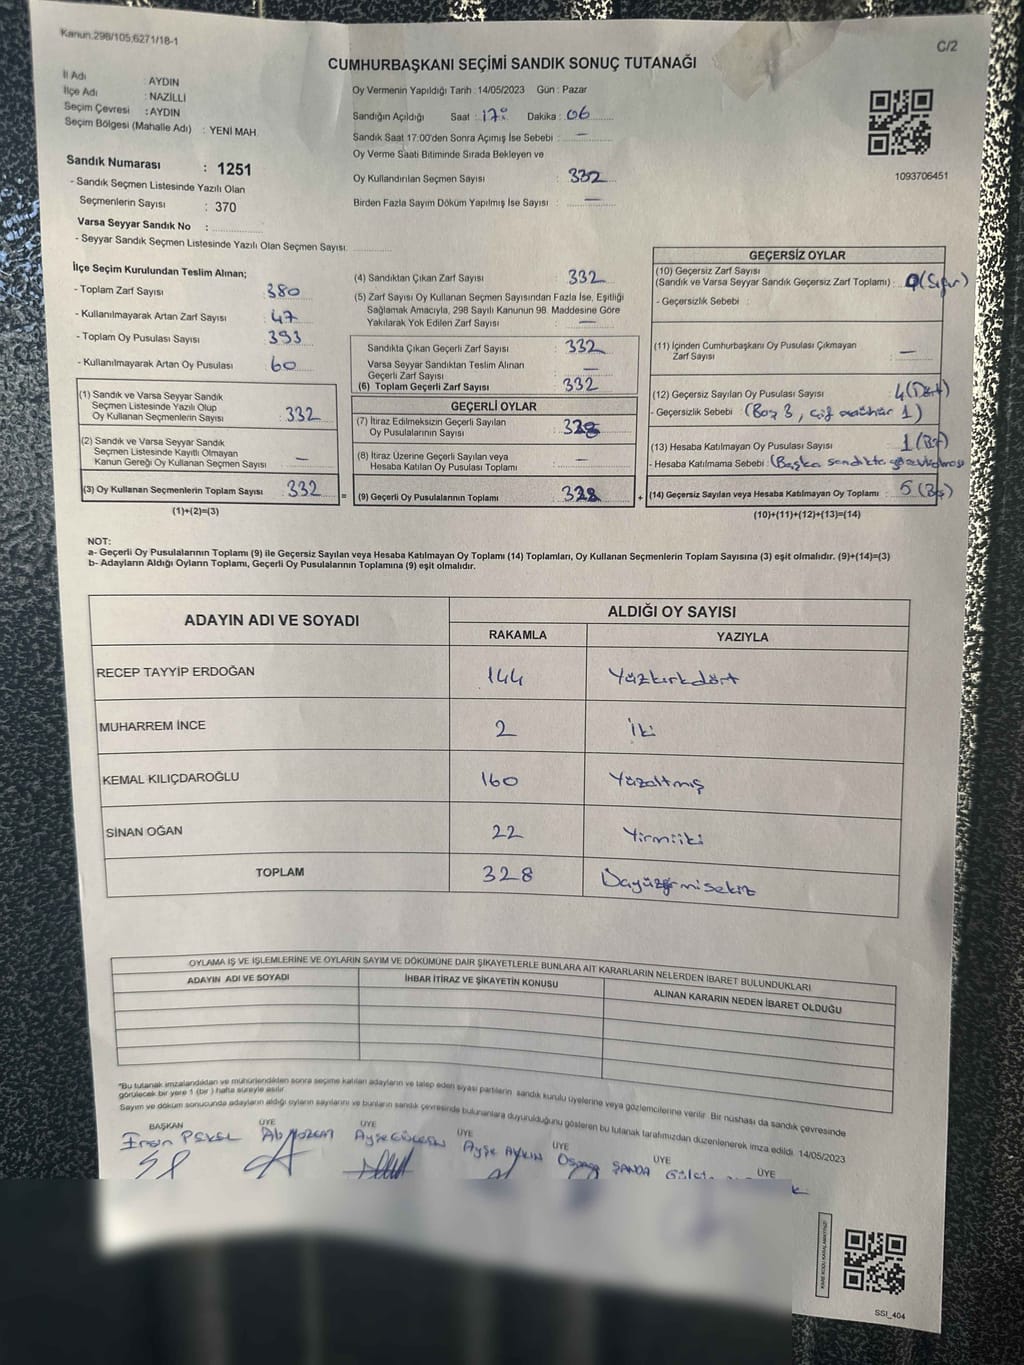 Kanun.298/105,6271/18-1
C/2
CUMHURBAŞKANI SEÇİMİ SANDIK SONUÇ TUTANAĞI
İl Adı : AYDIN
İlçe Adı : NAZİLLİ
Seçim Çevresi : AYDIN
Seçim Bölgesi (Mahalle Adı) : YENİ MAH.
Sandık Numarası : 1251
- Sandık Seçmen Listesinde Yazılı Olan
Seçmenlerin Sayısı : 370
Varsa Seyyar Sandık No :
- Seyyar Sandık Seçmen Listesinde Yazılı Olan Seçmen Sayısı:
Oy Vermenin Yapıldığı Tarih : 14/05/2023 Gün : Pazar
Sandığın Açıldığı Saat : 17: Dakika : 06
Sandık Saat 17:00'den Sonra Açımış İse Sebebi : —
Oy Verme Saati Bitiminde Sırada Bekleyen ve
Oy Kullandırılan Seçmen Sayısı : 332
Birden Fazla Sayım Döküm Yapılmış İse Sayısı : —
1093706451
İlçe Seçim Kurulundan Teslim Alınan;
- Toplam Zarf Sayısı : 380
- Kullanılmayarak Artan Zarf Sayısı : 47
- Toplam Oy Pusulası Sayısı : 393
- Kullanılmayarak Artan Oy Pusulası : 60
(1) Sandık ve Varsa Seyyar Sandık
Seçmen Listesinde Yazılı Olup
Oy Kullanan Seçmenlerin Sayısı : 332
(2) Sandık ve Varsa Seyyar Sandık
Seçmen Listesinde Kayıtlı Olmayan
Kanun Gereği Oy Kullanan Seçmen Sayısı : —
(3) Oy Kullanan Seçmenlerin Toplam Sayısı : 332
(1)+(2)=(3)
=
(4) Sandıktan Çıkan Zarf Sayısı : 332
(5) Zarf Sayısı Oy Kullanan Seçmen Sayısından Fazla İse, Eşitliği
Sağlamak Amacıyla, 298 Sayılı Kanunun 98. Maddesine Göre
Yakılarak Yok Edilen Zarf Sayısı : —
Sandıkta Çıkan Geçerli Zarf Sayısı : 332
Varsa Seyyar Sandıktan Teslim Alınan
Geçerli Zarf Sayısı : —
(6) Toplam Geçerli Zarf Sayısı : 332
GEÇERLİ OYLAR
(7) İtiraz Edilmeksizin Geçerli Sayılan
Oy Pusulalarının Sayısı : 328
(8) İtiraz Üzerine Geçerli Sayılan veya
Hesaba Katılan Oy Pusulası Toplamı : —
(9) Geçerli Oy Pusulalarının Toplamı : 328
+
GEÇERSİZ OYLAR
(10) Geçersiz Zarf Sayısı
(Sandık ve Varsa Seyyar Sandık Geçersiz Zarf Toplamı) : 0 (Sıfır)
- Geçersizlik Sebebi :
(11) İçinden Cumhurbaşkanı Oy Pusulası Çıkmayan
Zarf Sayısı : —
(12) Geçersiz Sayılan Oy Pusulası Sayısı : 4 (Dört)
- Geçersizlik Sebebi : (Boş 3, çift mühür 1)
(13) Hesaba Katılmayan Oy Pusulası Sayısı : 1 (Bir)
- Hesaba Katılmama Sebebi : (Başka sandıkta
(14) Geçersiz Sayılan veya Hesaba Katılmayan Oy Toplamı : 5 (Beş)
(10)+(11)+(12)+(13)=(14)
NOT:
a- Geçerli Oy Pusulalarının Toplamı (9) ile Geçersiz Sayılan veya Hesaba Katılmayan Oy Toplamı (14) Toplamları, Oy Kullanan Seçmenlerin Toplam Sayısına (3) eşit olmalıdır. (9)+(14)=(3)
b- Adayların Aldığı Oyların Toplamı, Geçerli Oy Pusulalarının Toplamına (9) eşit olmalıdır.
ADAYIN ADI VE SOYADI ALDIĞI OY SAYISI
RAKAMLA YAZIYLA
RECEP TAYYİP ERDOĞAN 144 Yüzkırkdört
MUHARREM İNCE 2 İki
KEMAL KILIÇDAROĞLU 160 Yüzaltmış
SİNAN OĞAN 22 Yirmiiki
TOPLAM 328 Üçyüzyirmisekiz
OYLAMA İŞ VE İŞLEMLERİNE VE OYLARIN SAYIM VE DÖKÜMÜNE DAİR ŞİKAYETLERLE BUNLARA AİT KARARLARIN NELERDEN İBARET BULUNDUKLARI
ADAYIN ADI VE SOYADI İHBAR İTİRAZ VE ŞİKAYETİN KONUSU ALINAN KARARIN NEDEN İBARET OLDUĞU
*Bu tutanak imzalandıktan ve mühürlendikten sonra seçime katılan adayların ve talep eden siyasi partilerin sandık kurulu üyelerine veya gözlemcilerine verilir. Bir nüshası da sandık çevresinde
görülecek bir yere 1 (bir) hafta süreyle asılır.
Sayım ve döküm sonucunda adayların aldığı oyların sayılarını ve bunların sandık çevresinde bulunanlara duyurulduğunu gösteren bu tutanak tarafımızdan düzenlenerek imza edildi. 14/05/2023
BAŞKAN ÜYE ÜYE ÜYE ÜYE ÜYE ÜYE
Ayşe AYKIN
ŞANDA
KARE KODU KARALAMAYINIZ!
SSI_404